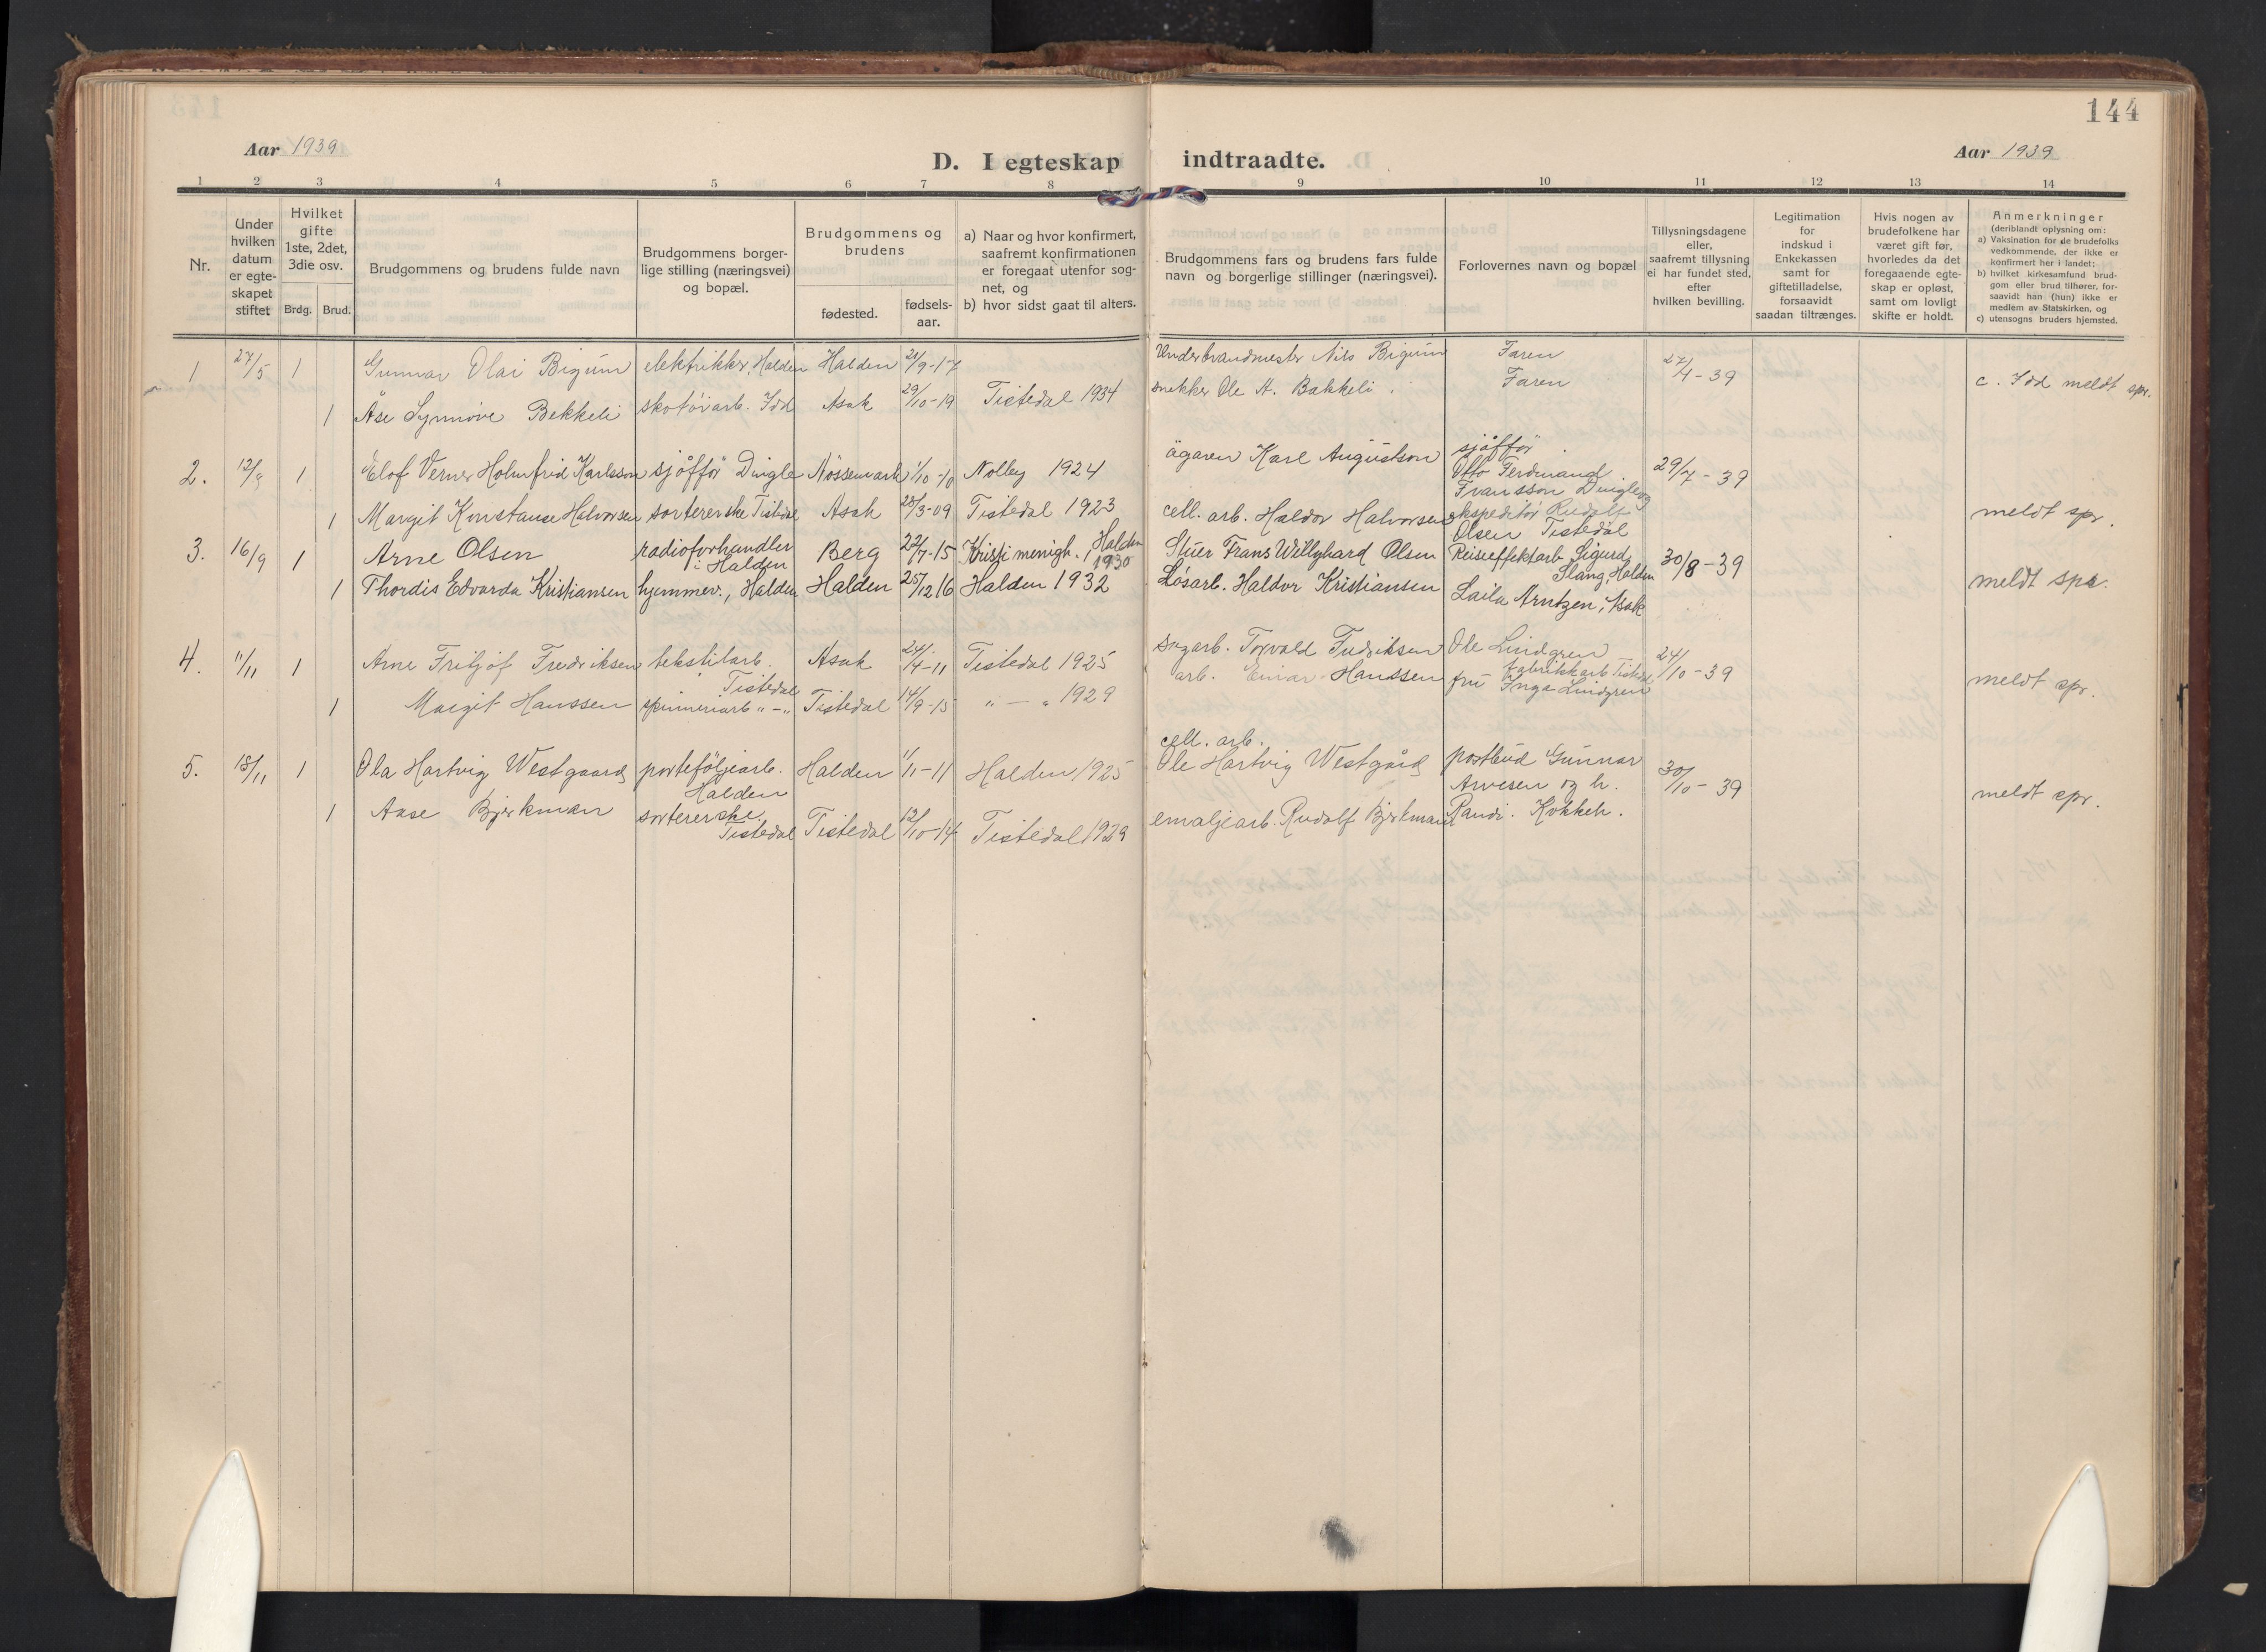 144
Aar 1939
D. I egteskap indtraadte.
Aar 1939
1 2 3 4 5 6 7 8 9 10 11 12 13 14
Nr.
Under
hvilken
datum
er egte-
skapet
stiftet
Hvilket
gifte
1ste, 2det,
3die osv.
Brdg. Brud.
Brudgommens og brudens fulde navn
Brudgommens borger-
lige stilling (næringsvei)
og bopæl.
Brudgommens og
brudens
fødested.
fødsels-
aar.
a) Naar og hvor konfirmert,
saafremt konfirmationen
er foregaat utenfor sog-
net, og
b) hvor sidst gaat til alters.
Brudgommens fars og brudens fars fulde
navn og borgerlige stillinger (næringsvei).
Forlovernes navn og bopæl
Tillysningsdagene
eller,
saafremt tillysning
ei har fundet sted,
efter
hvilken bevilling.
Legitimation
for
indskud i
Enkekassen
samt for
giftetilladelse,
forsaavidt
saadan tiltrænges.
Hvis nogen av
brudefolkene har
været gift før,
hvorledes da det
foregaaende egte-
skap er opløst,
samt om lovligt
skifte er holdt.
Anmerkninger
(deriblandt oplysning om:
a) Vaksination for de brudefolks
vedkommende, der ikke er
konfirmert her i landet;
b) hvilket kirkesamfund brud-
gom eller brud tilhører, for-
saavidt han (hun) ikke er
medlem av Statskirken, og
c) utensogns bruders hjemsted.
1 27/5 1 Gunnar Olai Bigum elektriker, Halden Halden 21/9-17 Underbrandmester Nils Bigum Faren 27/4-39
1 Åse Synnøve Bekkeli skotøiarb. Idd Asak 29/10-19 Tistedal 1934 snekker Ole A. Bakkeli Faren c. Idd meldt spr.
2. 12/8 1 Elof Verner Holmfrid Karlsson sjåffør Dingle Nössemark 1/10-10 Nolby 1924 ägaren Karl Augustson sjåffør
Otto Ferdinand
Fransson Dingle og 29/7-39
1 Margit Konstanse Halvorsen sortererske Tistedal Asak 28/3-09 Tistedal 1923 cell. arb. Haldor Halvorsen ekspeditør Rudolf
Olsen Tistedal meldt spr.
3. 16/9 1 Arne Olsen radioforhandler
i Halden Berg 22/7-15 Kristi menigh., Halden
1930 Stuer Frans Willyhard Olsen Reiseeffektarb. Sigurd
Slang, Halden 30/8-39
1 Thordis Edvarda Kristiansen hjemmev., Halden Halden 25/12 16 Halden 1932 Løsarb. Haldor Kristiansen Laila Arntzen, Asak meldt spr.
4. 11/11 1 Arne Fritjof Fredriksen tekstilarb.
Tistedal Asak 24/4-11 Tistedal 1925 sagarb. Torvald Fredriksen Ole Lindgren
fabrikkarb. Tistedal 24/10-39
1 Margit Hanssen spinneriarb. " - " Tistedal 14/9-15 " - " 1929 arb. Einar Hanssen fru Inga Lindgren meldt spr.
5. 18/11 1 Ola Hartvig Westgaard porteføljearb.
Halden Halden 1/11-11 Halden 1925 cell. arb.
Ole Hartvig Westgård postbud Gunnar
Arvesen og h. 30/10-39
1 Aase Bjerkman sortererske
Tistedal Tistedal 12/10-14 Tistedal 1929 emaljearb. Rudolf Bjerkman Randi. Kokkeh. meldt spr.